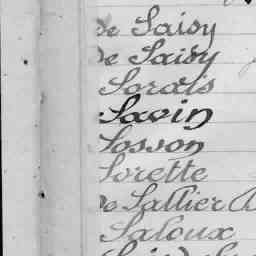 de Saisy
de Saisy
Sorais
Savin
Sosson
Sorette
de Sallier
Saloux